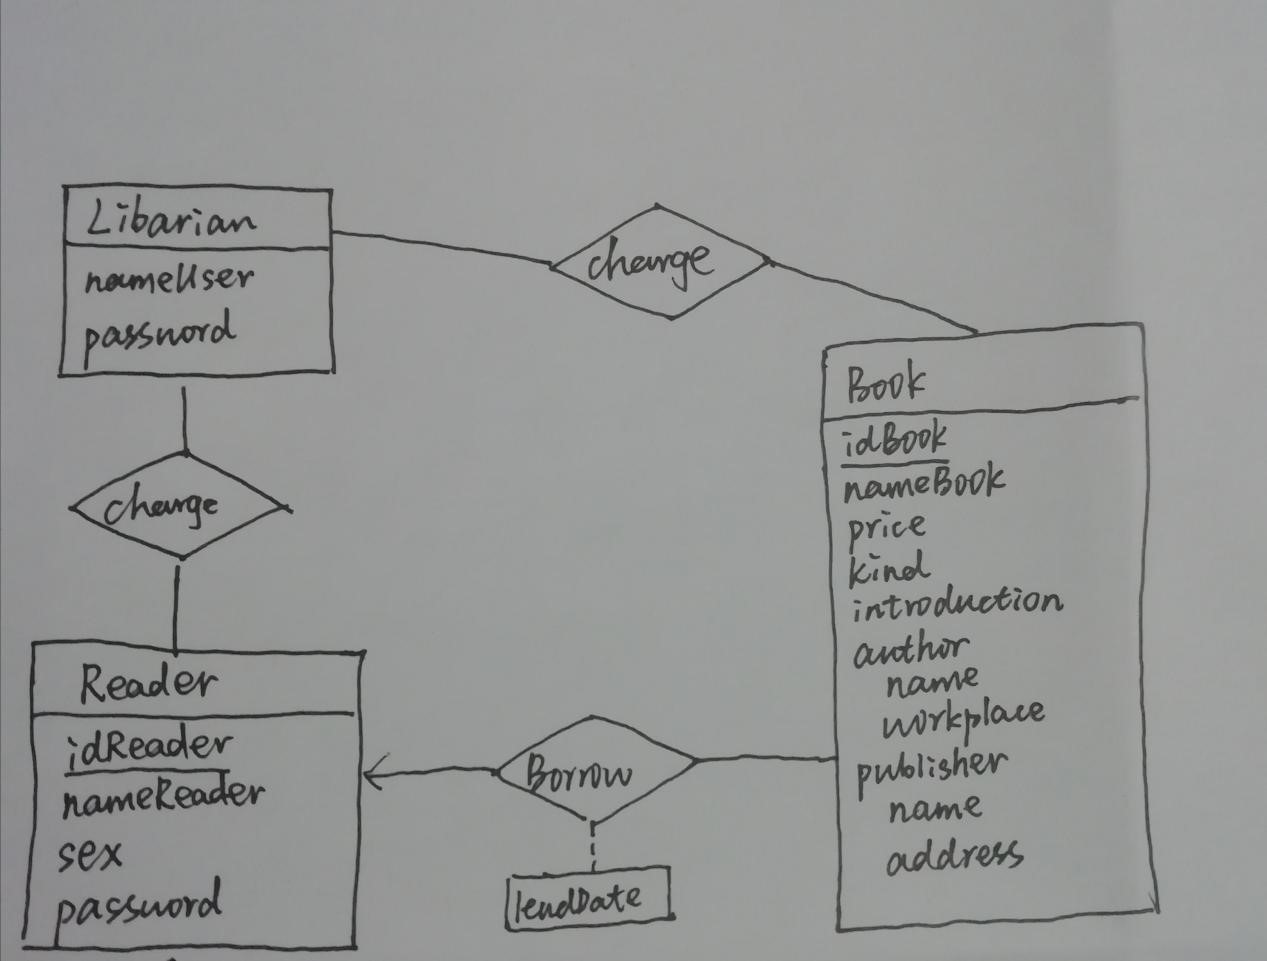 Libarian
nameUser
password
change
Book
idBook
nameBook
price
kind
introduction
author
name
workplace
publisher
name
address
change
Reader
idReader
nameReader
sex
password
Borrow
lendDate